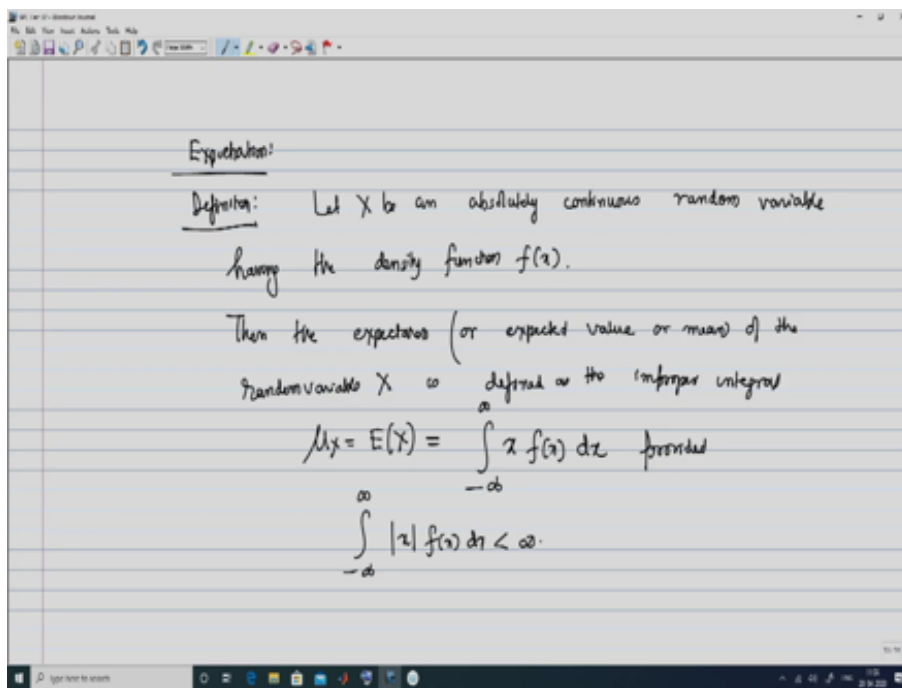 File Edit View Insert Actions Tools Help
Expectation:
Definition: Let X be an absolutely continuous random variable
having the density function f(x).
Then the expectation (or expected value or mean) of the
random variable X is defined as the improper integral
μx = E(X) = ∫_{-∞}^{∞} x f(x) dx provided
∫_{-∞}^{∞} |x| f(x) dx < ∞.
Type here to search